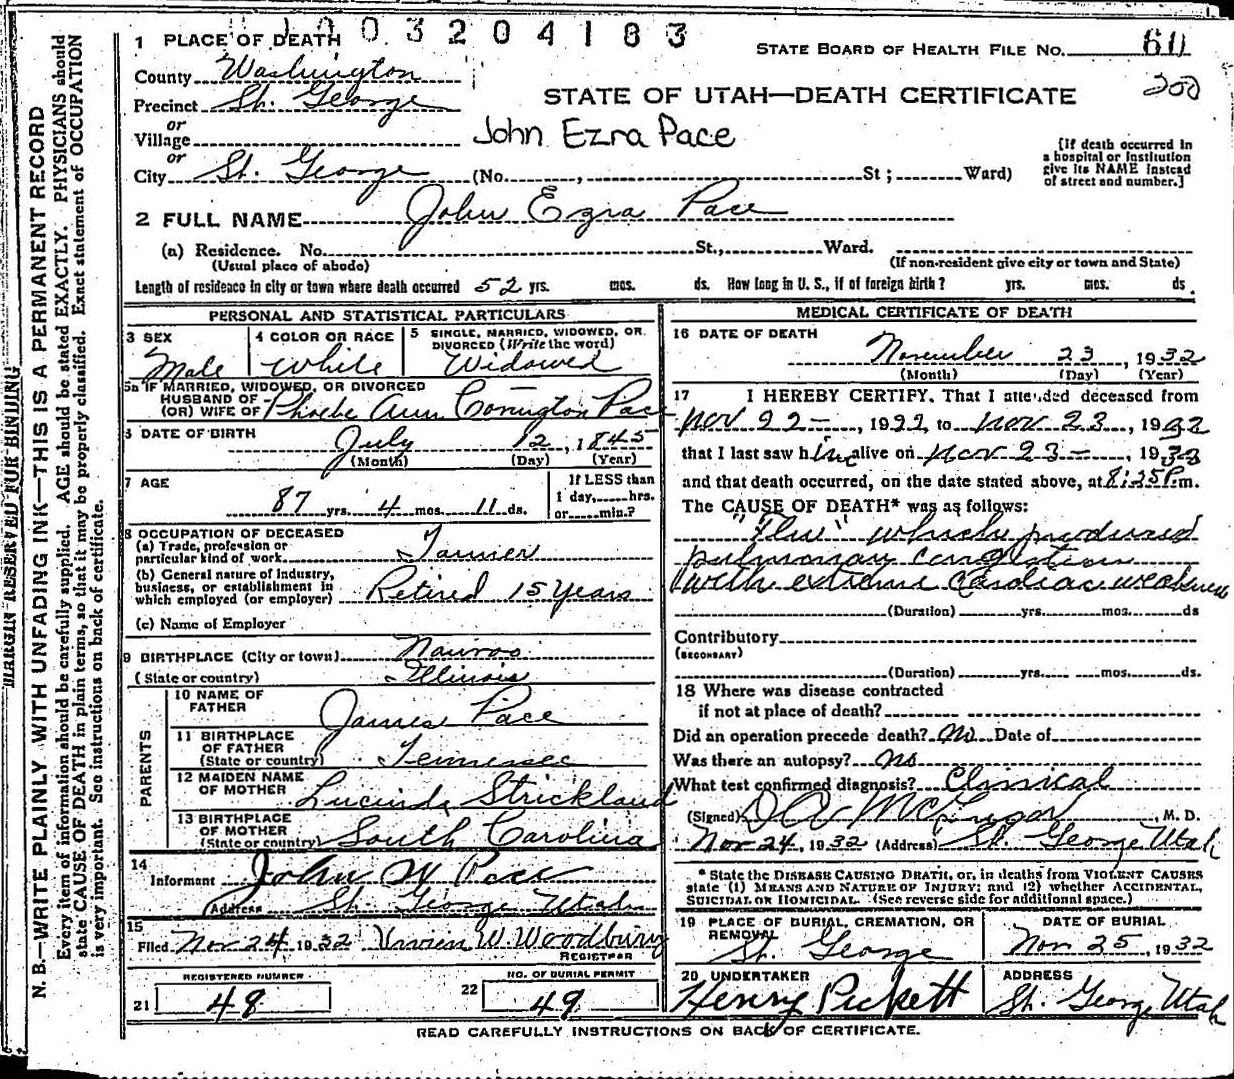 1003204183
1 PLACE OF DEATH
STATE BOARD OF HEALTH FILE NO. 60
County Washington
200
Precinct St. George
STATE OF UTAH—DEATH CERTIFICATE
or
Village
John Ezra Pace
[If death occurred in a hospital or institution give its NAME instead of street and number.]
or
City St. George (No. , St ; Ward)
2 FULL NAME John Ezra Pace
(a) Residence. No. St., Ward.
(Usual place of abode) (If non-resident give city or town and State)
Length of residence in city or town where death occurred 52 yrs. mos. ds. How long in U. S., if of foreign birth? yrs. mos. ds.
PERSONAL AND STATISTICAL PARTICULARS
3 SEX Male
4 COLOR OR RACE White
5 SINGLE, MARRIED, WIDOWED, OR DIVORCED (Write the word) Widowed
5a IF MARRIED, WIDOWED, OR DIVORCED
HUSBAND OF
(OR) WIFE OF Phoebe Ann Covington Pace
6 DATE OF BIRTH
July 12, 1845
(Month) (Day) (Year)
7 AGE
87 yrs. 4 mos. 11 ds.
If LESS than
1 day, hrs.
or min.?
8 OCCUPATION OF DECEASED
(a) Trade, profession or
particular kind of work
(b) General nature of Industry,
business, or establishment in
which employed (or employer) Retired 15 Years
(c) Name of Employer
9 BIRTHPLACE (City or town) Nauvoo
(State or country) Illinois
PARENTS
10 NAME OF
FATHER James Pace
11 BIRTHPLACE
OF FATHER
(State or country) Tennessee
12 MAIDEN NAME
OF MOTHER Lucinda Strickland
13 BIRTHPLACE
OF MOTHER
(State or country) South Carolina
14
Informant John W Pace
Address St. George Utah
15
Filed Nov 24 1932 W. Woodbury
REGISTRAR
REGISTERED NUMBER
21 48
NO. OF BURIAL PERMIT
22 49
MEDICAL CERTIFICATE OF DEATH
16 DATE OF DEATH
November 23, 1932
(Month) (Day) (Year)
17 I HEREBY CERTIFY, That I attended deceased from
Nov 22 -, 1932, to Nov 23, 1932
that I last saw him alive on Nov 23 -, 1932
and that death occurred, on the date stated above, at 8:25 P.m.
The CAUSE OF DEATH* was as follows:
"Flu" which produced
pulmonary congestion
with extreme cardiac weakness
(Duration) yrs. mos. ds
Contributory
(SECONDARY)
(Duration) yrs. mos. ds.
18 Where was disease contracted
if not at place of death?
Did an operation precede death? no Date of
Was there an autopsy? no
What test confirmed diagnosis? Clinical
(Signed) McGregor, M. D.
Nov 24, 1932 (Address) St. George Utah
* State the DISEASE CAUSING DEATH, or, in deaths from VIOLENT CAUSES
state (1) MEANS AND NATURE OF INJURY; and (2) whether ACCIDENTAL,
SUICIDAL OR HOMICIDAL. (See reverse side for additional space.)
19 PLACE OF BURIAL, CREMATION, OR
REMOVAL
St. George
DATE OF BURIAL
Nov 25, 1932
20 UNDERTAKER
Henry Pickett
ADDRESS
St. George Utah
READ CAREFULLY INSTRUCTIONS ON BACK OF CERTIFICATE.
MARGIN RESERVED FOR BINDING
N. B.—WRITE PLAINLY WITH UNFADING INK—THIS IS A PERMANENT RECORD
Every item of information should be carefully supplied. AGE should be stated EXACTLY. PHYSICIANS should
state CAUSE OF DEATH in plain terms, so that it may be properly classified. Exact statement of OCCUPATION
is very important. See instructions on back of certificate.